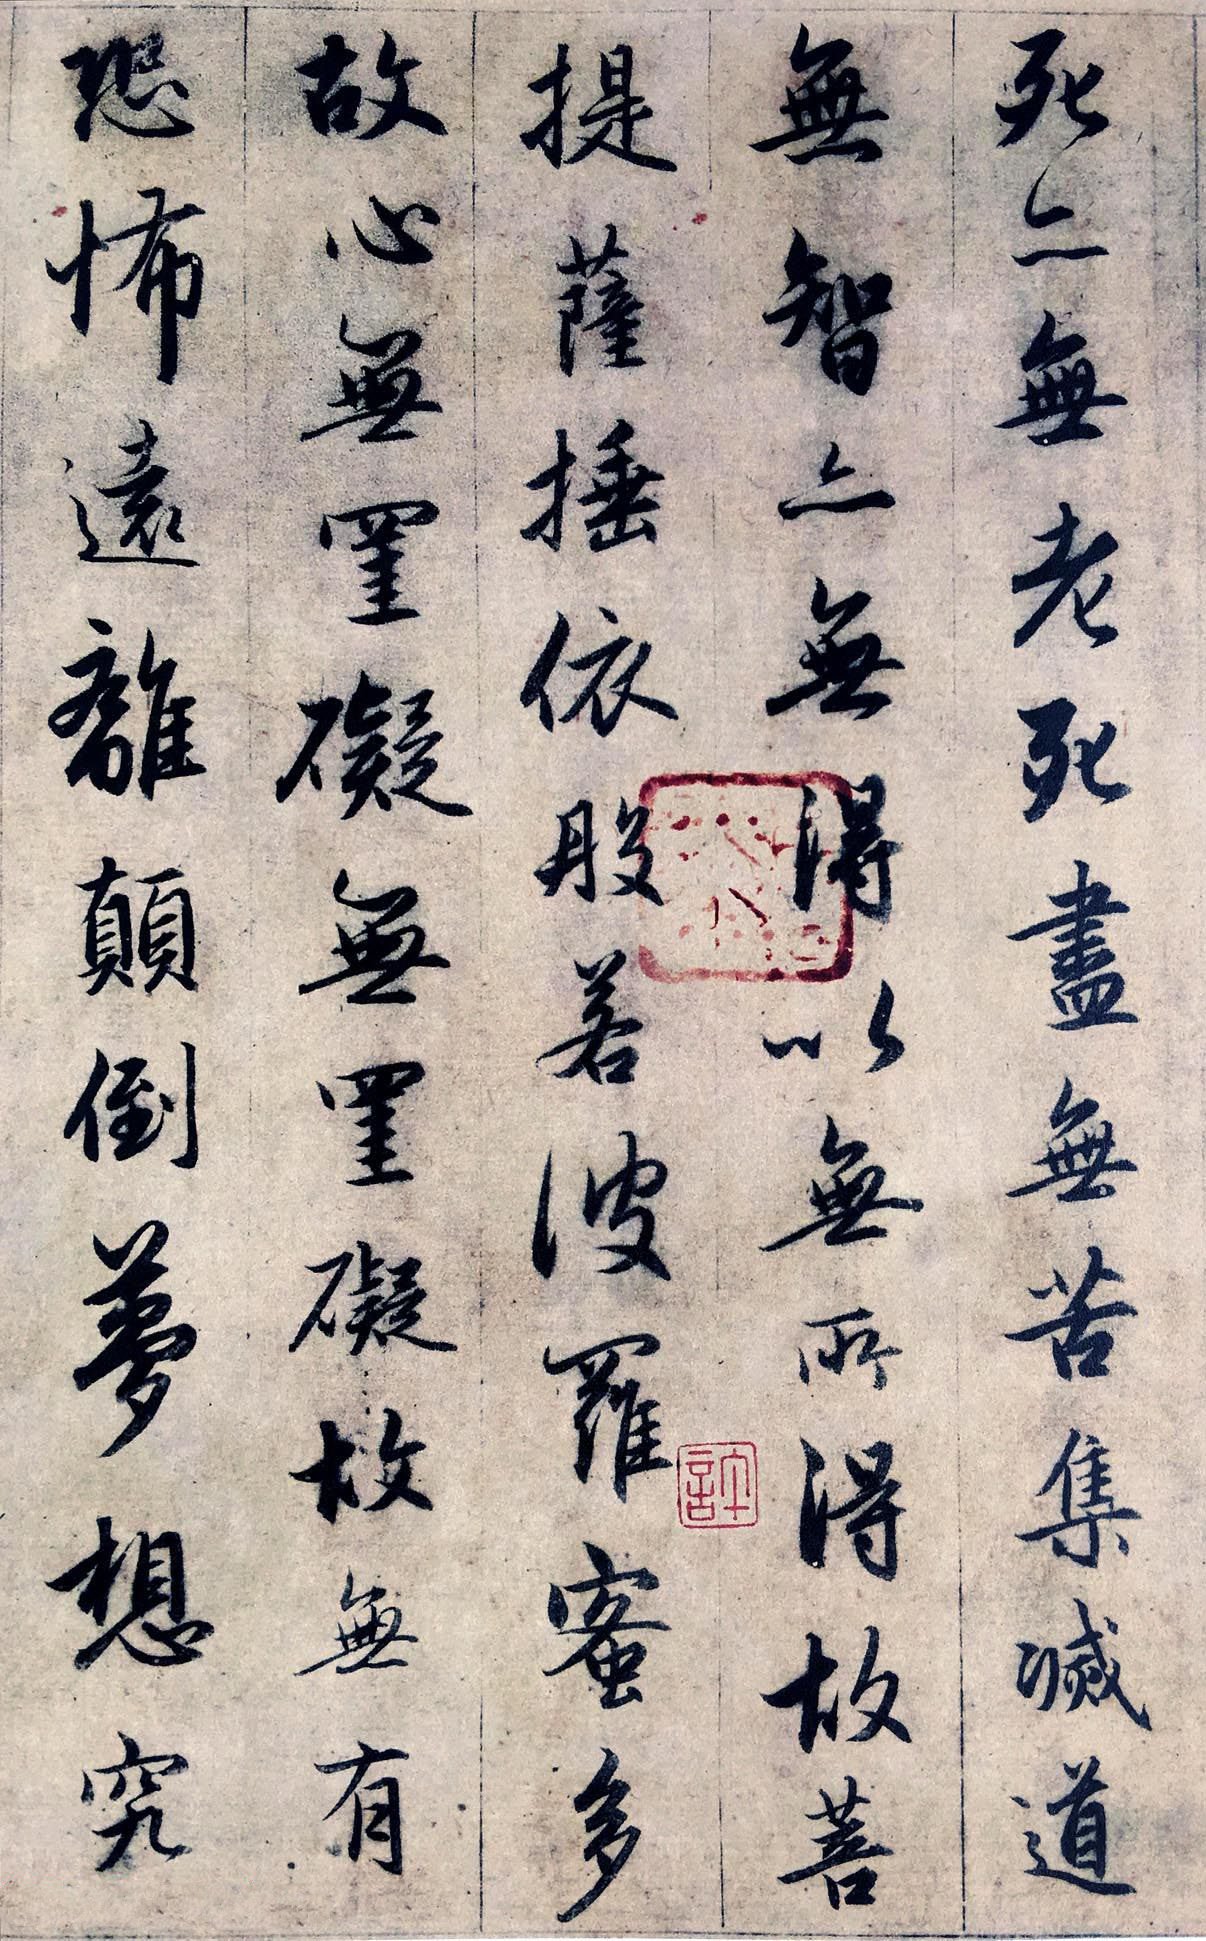 死亦無老死盡無苦集滅道
無智亦無得以無所得故菩
提薩捶依般若波羅蜜多
故心無罣礙無罣礙故無有
恐怖遠離顛倒夢想究
許